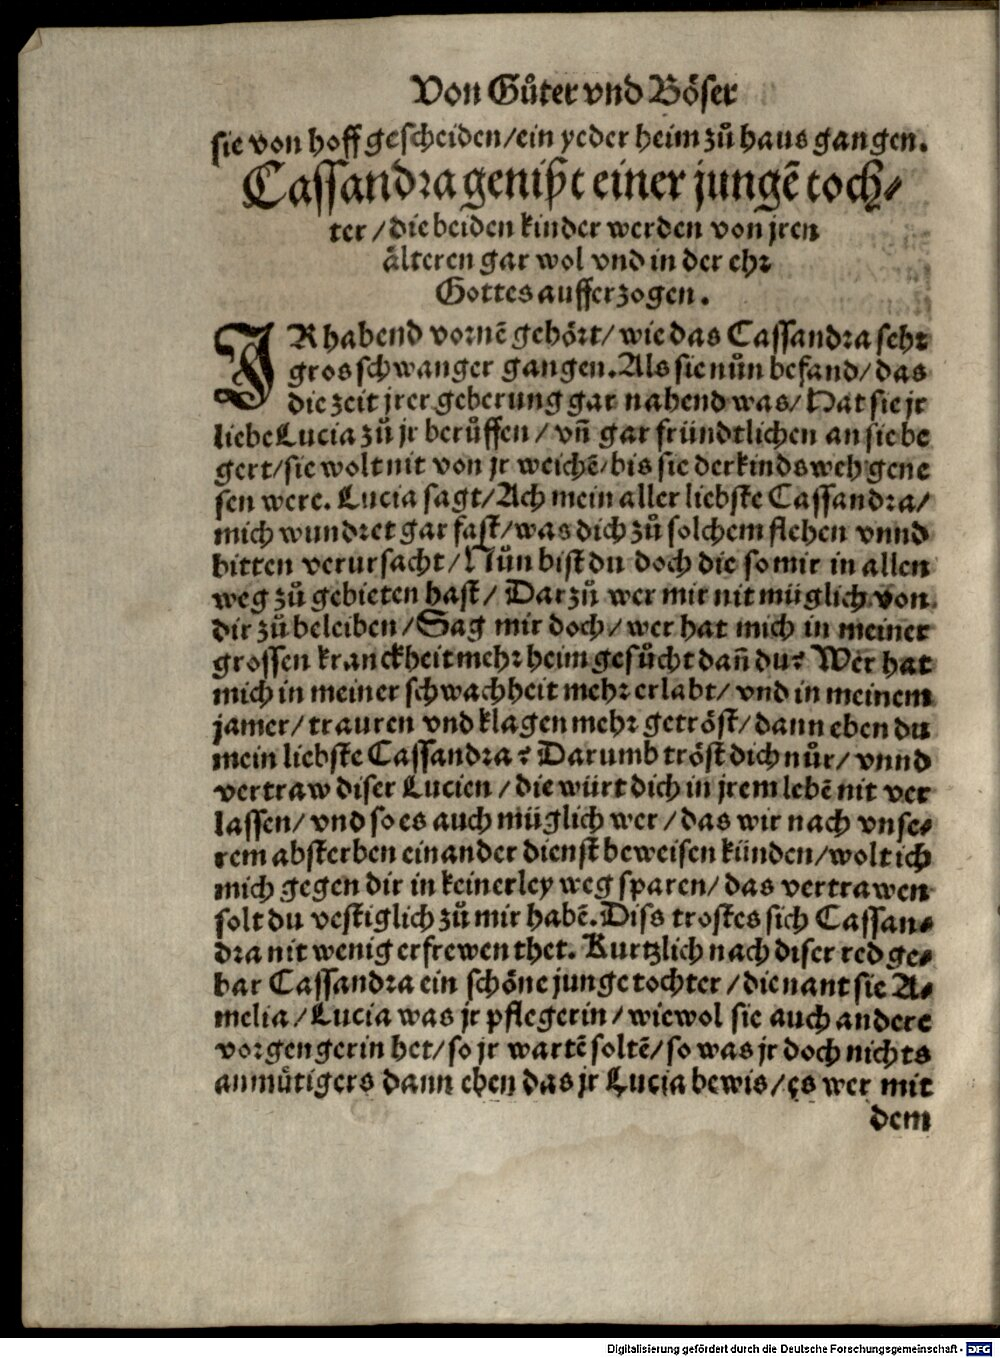 Von Gůter vnd Böser
sie von hoff gescheiden/ein yeder heim zů haus gangen.
Cassandra genißt einer jungẽ toch⸗
ter/die beiden kinder werden von jren
älteren gar wol vnd in der ehr
Gottes aufferzogen.
IR habend vornẽ gehört/wie das Cassandra sehr
gros schwanger gangen. Als sie nůn befand/das
die zeit jrer geberung gar nahend was/Hat sie jr
liebe Lucia zů jr berůffen/vñ gar fründtlichen an sie be
gert/sie wolt nit von jr weichẽ/bis sie der kindsweh gene
sen were. Lucia sagt/Ach mein aller liebste Cassandra/
mich wundret gar fast/was dich zů solchem flehen vnnd
bitten verursacht/Nůn bist du doch die so mir in allen
weg zů gebieten hast/Dar zů wer mir nit müglich von
dir zů beleiben/Sag mir doch/wer hat mich in meiner
grossen kranckheit mehr heim gesůcht dañ du? Wer hat
mich in meiner schwachheit mehr erlabt/vnd in meinem
jamer/trauren vnd klagen mehr getröst/dann eben du
mein liebste Cassandra? Darumb tröst dich nůr/vnnd
vertraw diser Lucien/die würt dich in jrem lebẽ nit ver
lassen/vnd so es auch müglich wer/das wir nach vnse⸗
rem absterben einander dienst beweisen künden/wolt ich
mich gegen dir in keinerley weg sparen/das vertrawen
solt du vestiglich zů mir habẽ. Diss trostes sich Cassan⸗
dra nit wenig erfrewen thet. Kurtzlich nach diser red ge⸗
bar Cassandra ein schöne junge tochter/die nant sie A⸗
melia/Lucia was jr pflegerin/wiewol sie auch andere
vorgengerin het/so jr wartẽ soltẽ/so was jr doch nichts
anmůtigers dann eben das jr Lucia bewis/es wer mit
dem
Digitalisierung gefördert durch die Deutsche Forschungsgemeinschaft - DFG